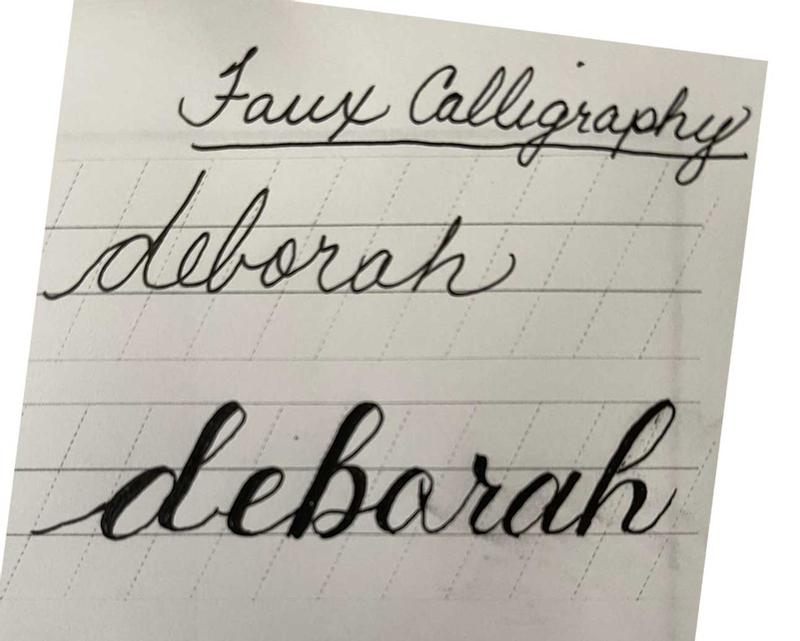 Faux Calligraphy
deborah
deborah